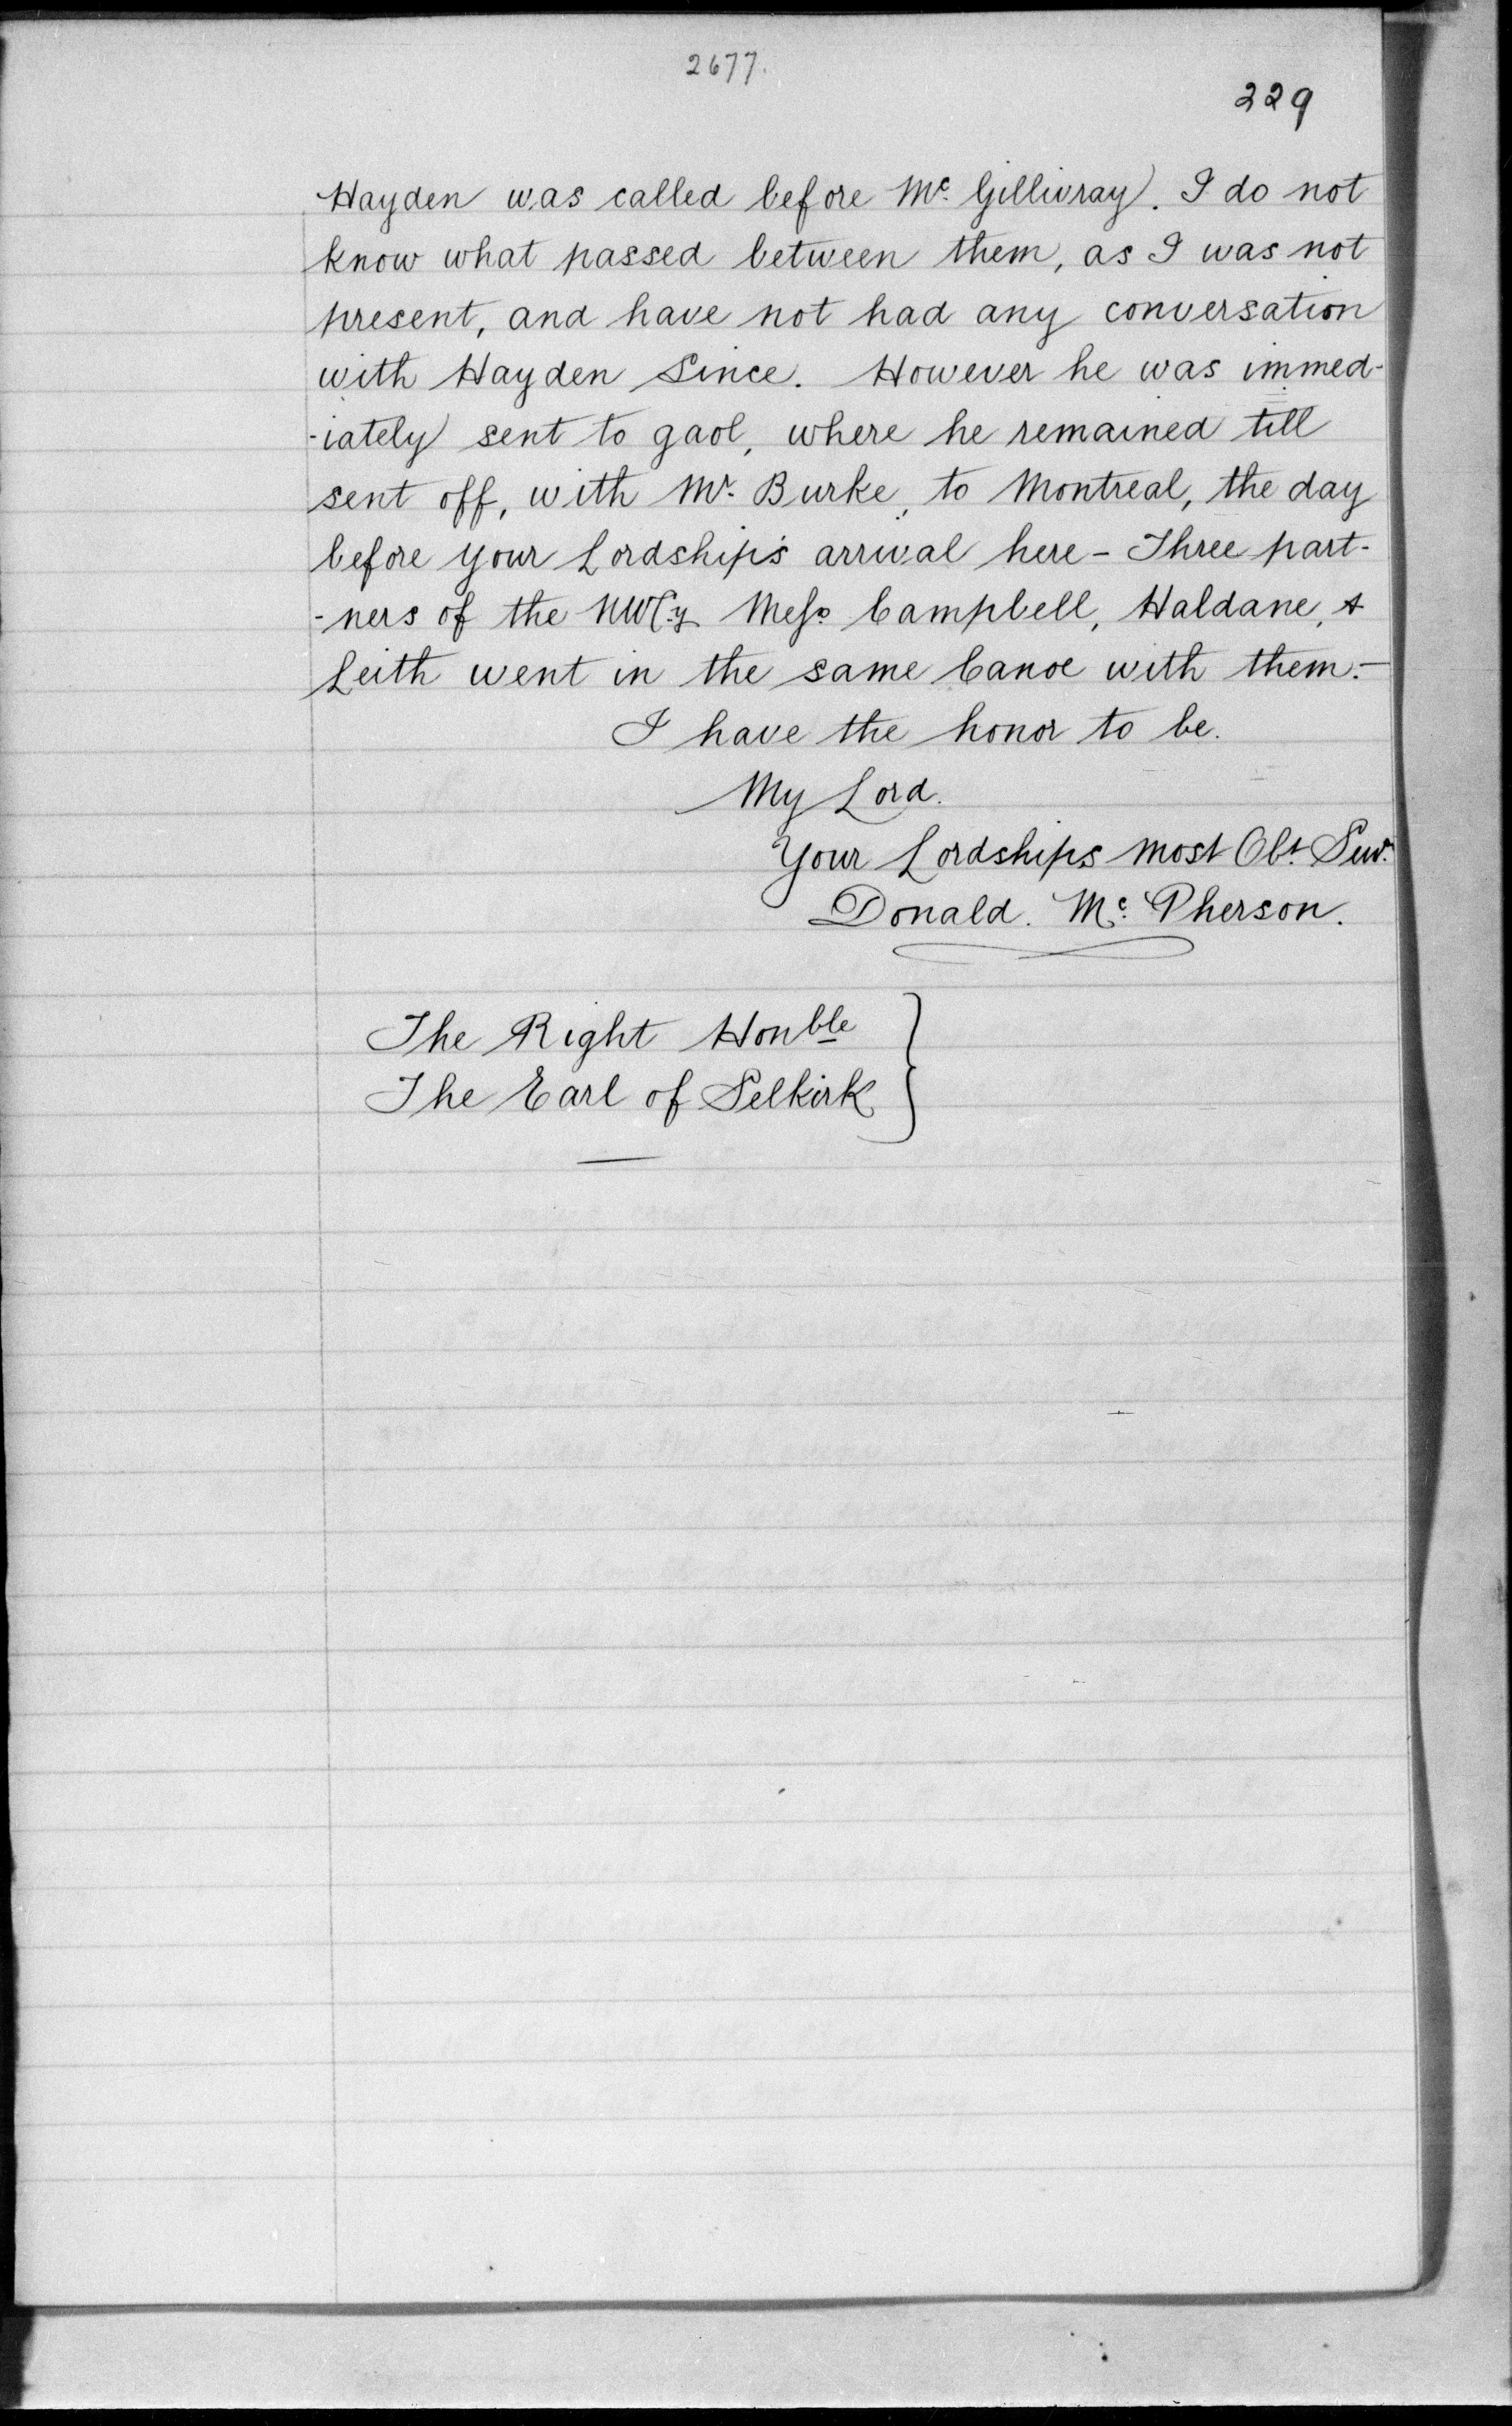 2677.
229
Hayden was called before Mc. Gillivray. I do not
know what passed between them, as I was not
present, and have not had any conversation
with Hayden Since. However he was immed-
-iately sent to gaol, where he remained till
sent off, with Mr. Burke, to Montreal, the day
before your Lordship's arrival here - Three part-
-ners of the NWCy Messs. Campbell, Haldane, &
Leith went in the same Canoe with them.-
I have the honor to be.
My Lord.
Your Lordships most Obt. Serv.
Donald. Mc. Pherson.
The Right Honble
The Earl of Selkirk